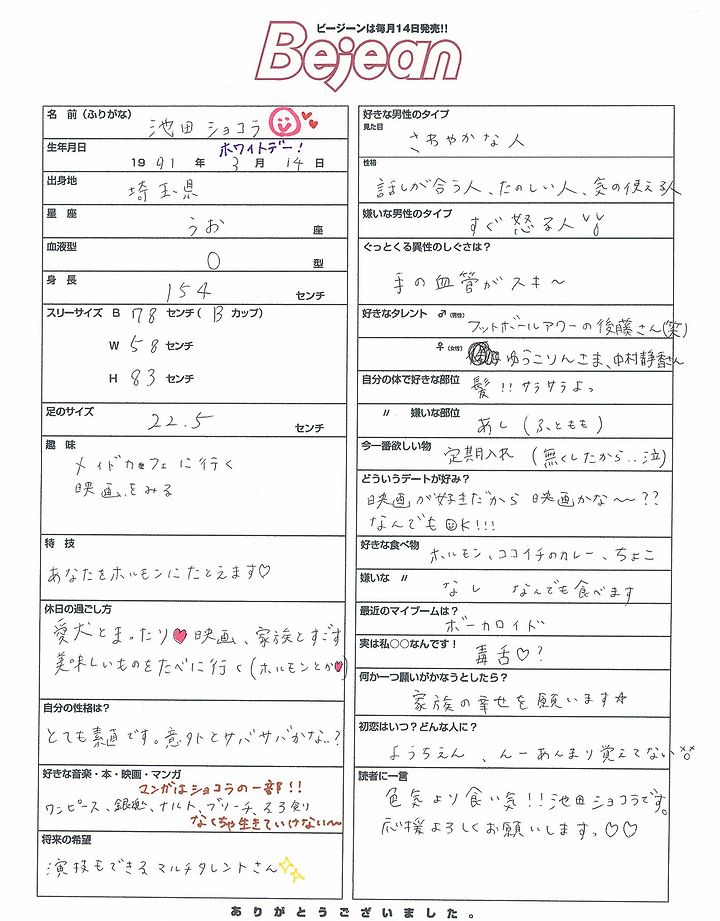 ビージーンは毎月14日発売!!
Bejean
名 前(ふりがな)
池田 ショコラ
生年月日
ホワイトデー!
1991 年 3 月 14 日
出身地
埼玉県
星 座
うお 座
血液型
O 型
身 長
154 センチ
スリーサイズ B 78 センチ( B カップ)
W 58 センチ
H 83 センチ
足のサイズ
22.5 センチ
趣 味
メイドカフェに行く
映画をみる
特 技
あなたをホルモンにたとえます♡
休日の過ごし方
愛犬とまったり♥映画、家族とすごす
美味しいものをたべに行く(ホルモンとか♥)
自分の性格は?
とても素直です。意外とサバサバかな..?
好きな音楽・本・映画・マンガ
マンガはショコラの一部!!
ワンピース、銀魂、ナルト、ブリーチ、るろ剣
なくちゃ生きていけない〜
将来の希望
演技もできるマルチタレントさん
好きな男性のタイプ
見た目
さわやかな人
性格
話しが合う人、たのしい人、気の使える人
嫌いな男性のタイプ
すぐ怒る人
ぐっとくる異性のしぐさは?
手の血管がスキ〜
好きなタレント ♂(男性)
フットボールアワーの後藤さん(笑)
♀(女性)
ゆうこりんさま、中村静香さん
自分の体で好きな部位
髪!!サラサラよっ
〃 嫌いな部位
あし(ふともも)
今一番欲しい物
定期入れ(無くしたから..泣)
どういうデートが好み?
映画が好きだから映画かな〜〜??
なんでもOK!!!
好きな食べ物
ホルモン、ココイチのカレー、ちょこ
嫌いな 〃
なし なんでも食べます
最近のマイブームは?
ボーカロイド
実は私○○なんです!
毒舌♡?
何か一つ願いがかなうとしたら?
家族の幸せを願います☆
初恋はいつ?どんな人に?
ようちえん、んーあんまり覚えてない
読者に一言
色気より食い気!!池田ショコラです。
応援よろしくお願いします。♡♡
ありがとうございました。